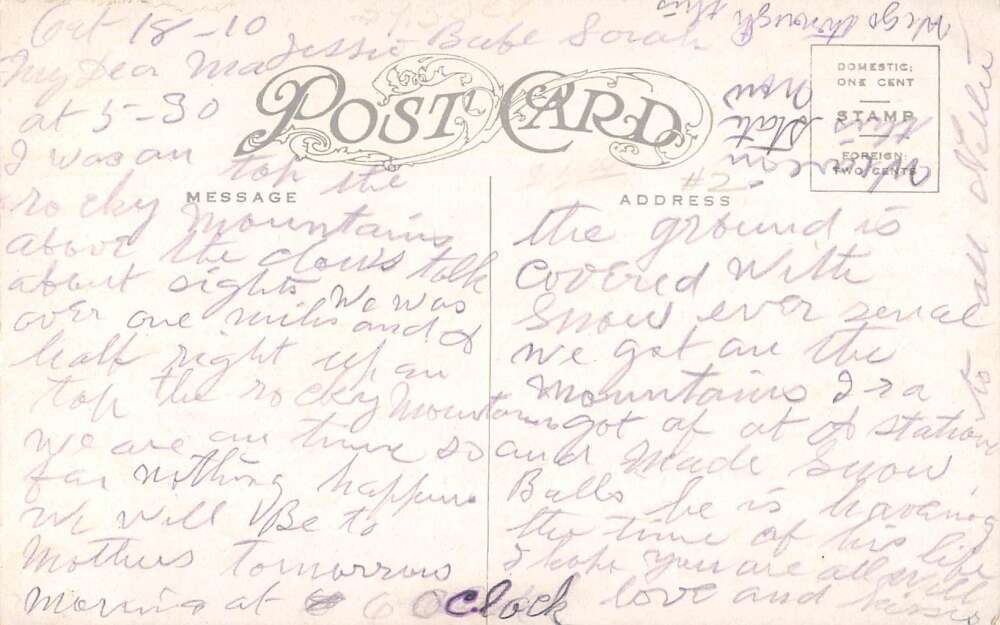 Oct 18-10
My Dear Ma Jessie Babe Sarah &
at 5-30
I was an top the
rocky Mountains
above the clouds talk
about sights We was
over one miles and a
half right up an
top the rocky Mountains
We are an time so
far nothing happens
We will Be to
Mothers tomorrow
Morning at 6 O Clock
POST CARD
MESSAGE
ADDRESS
DOMESTIC:
ONE CENT
STAMP
FOREIGN:
TWO CENTS
#2
the ground is
covered With
Snow ever sence
we got an the
Mountains Ira
got of at a station
and Made Snow
Balls he is haveing
the time of his life
I hope you are all well
love and kisses
to all Nellie
We go through this
we are in
this
state
now